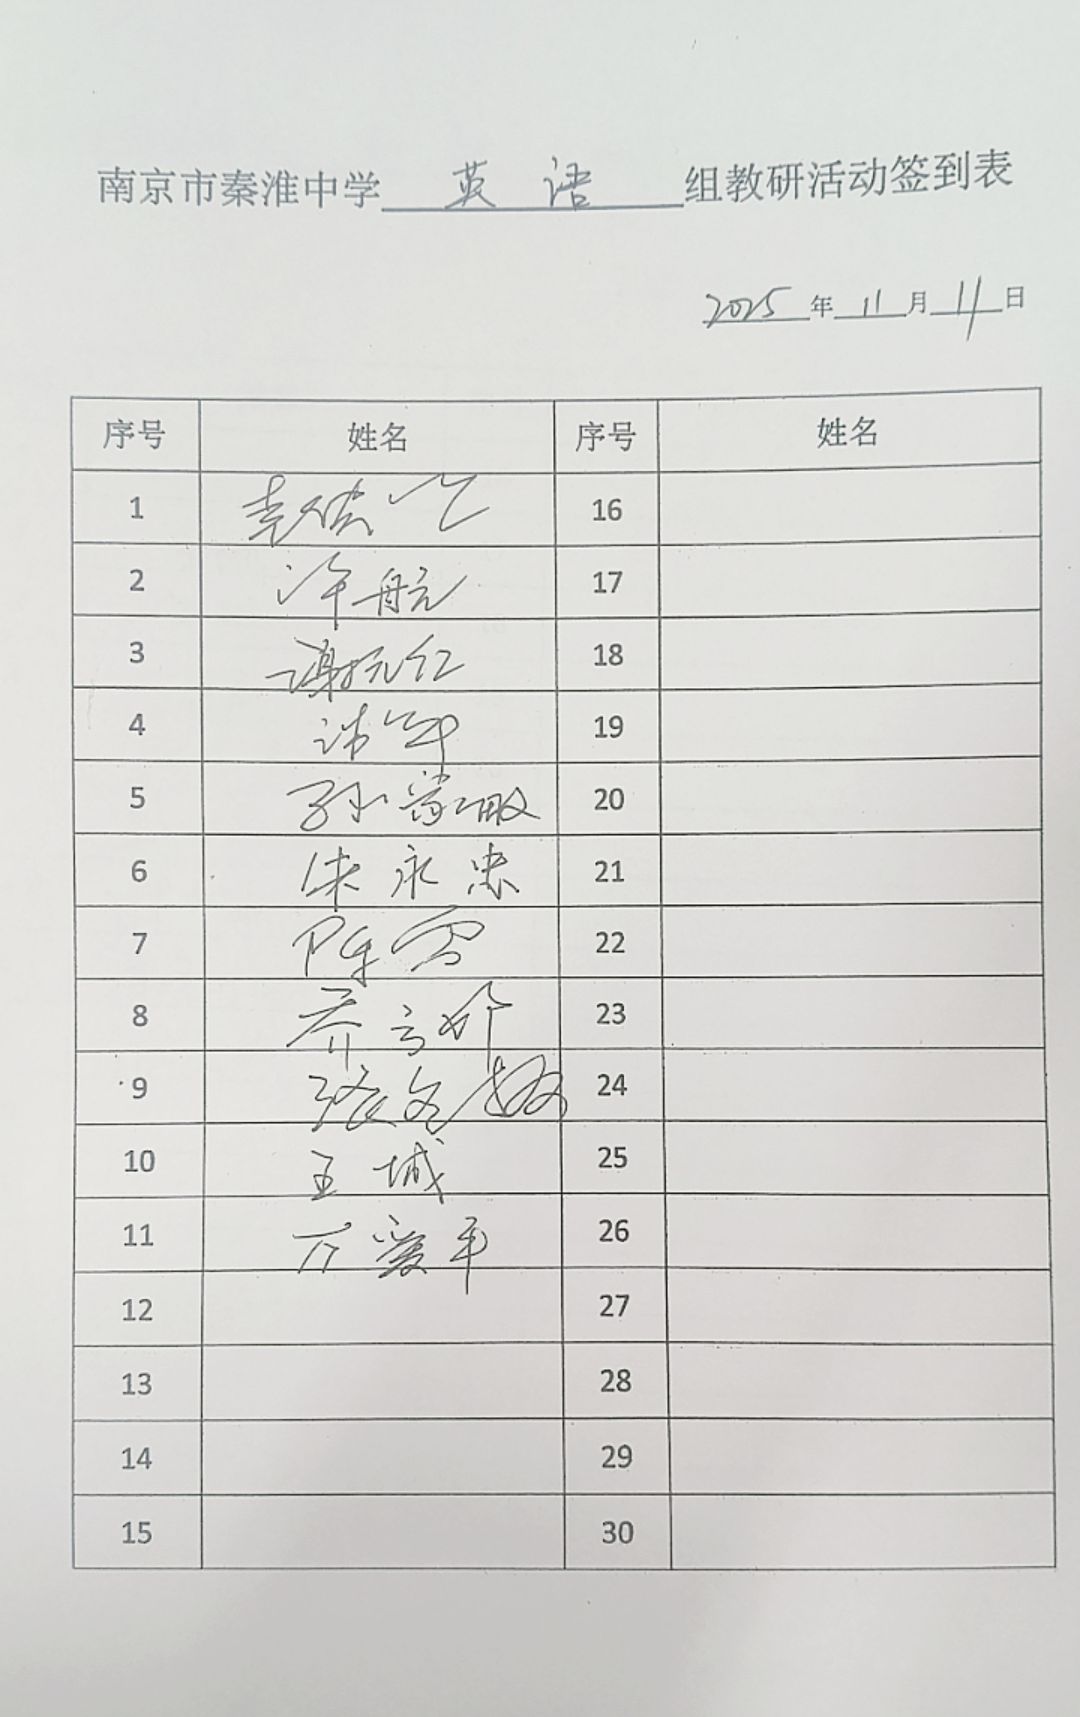 南京市秦淮中学 英语 组教研活动签到表
2025 年 11 月 11 日
序号 姓名 序号 姓名
1 16
2 许航 17
3 谢抚仁 18
4 19
5 孙常敏 20
6 朱永忠 21
7 陈雪 22
8 乔 23
9 张冬敏 24
10 王城 25
11 万爱平 26
12 27
13 28
14 29
15 30